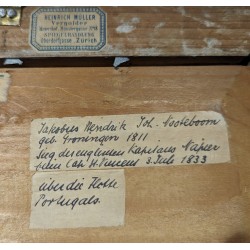 HEINRICH MÜLLER
Vergolder
Zürich
Jakobus Hendrik Joh. Nooteboom
geb. Groningen 1811
Sieg des englischen Kapitains Napier
beim Cap St. Vincent 3. Juli 1833
über die Flotte
Portugals.